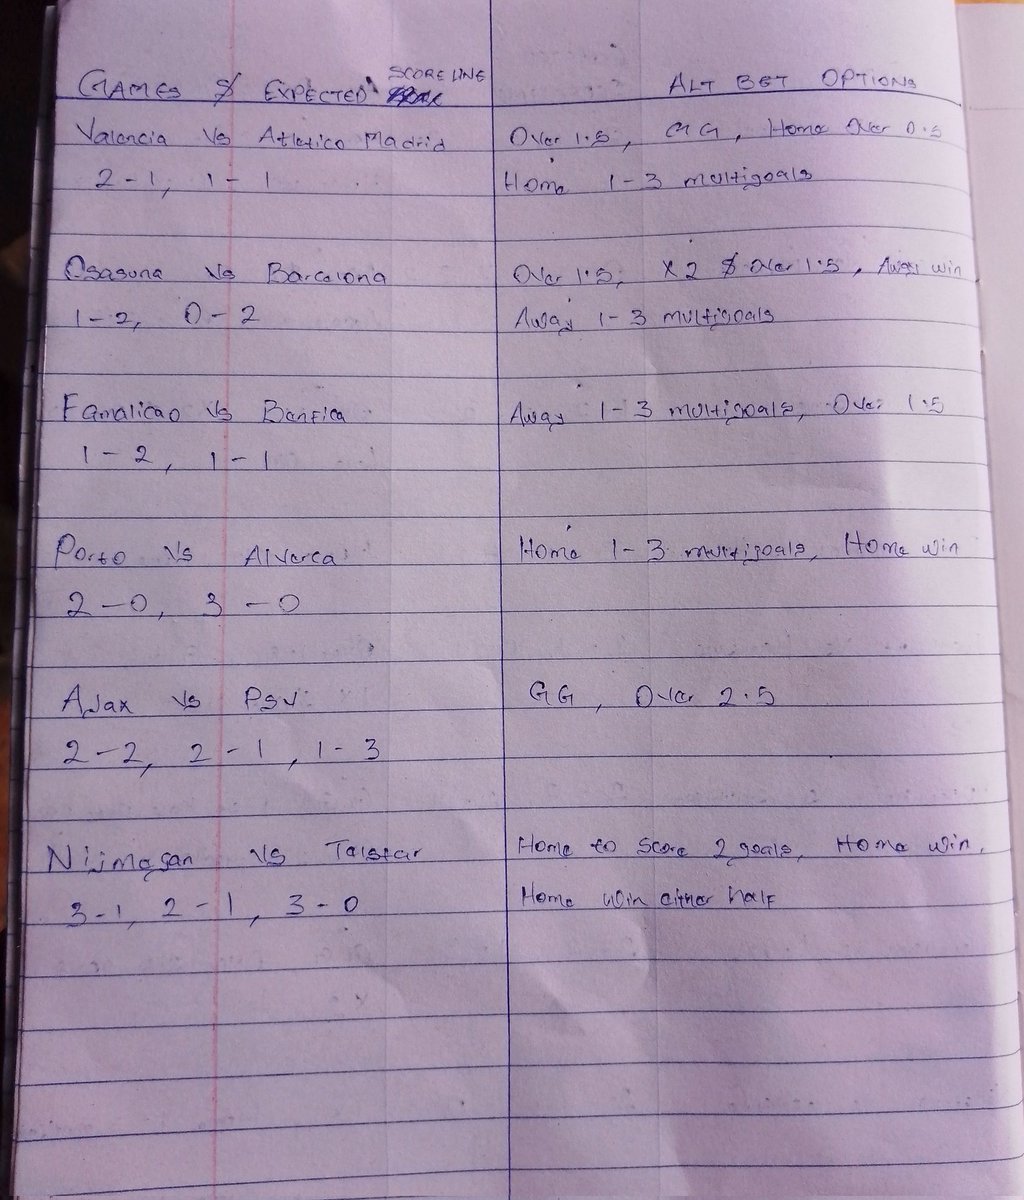 GAMES & EXPECTED SCORELINE
ALT BET OPTIONS
Valencia Vs Atletico Madrid
Over 1.5, GG, Home Over 0.5
2-1, 1-1
Home 1-3 multigoals
Osasuna Vs Barcelona
Over 1.5, X2 & Over 1.5, Away win
1-2, 0-2
Away 1-3 multigoals
Famalicao Vs Benfica
Away 1-3 multigoals, Over 1.5
1-2, 1-1
Porto Vs Alverca
Home 1-3 multigoals, Home win
2-0, 3-0
Ajax Vs PSV
GG, Over 2.5
2-2, 2-1, 1-3
Nijmegen Vs Telstar
Home to Score 2 goals, Home win,
3-1, 2-1, 3-0
Home win either half